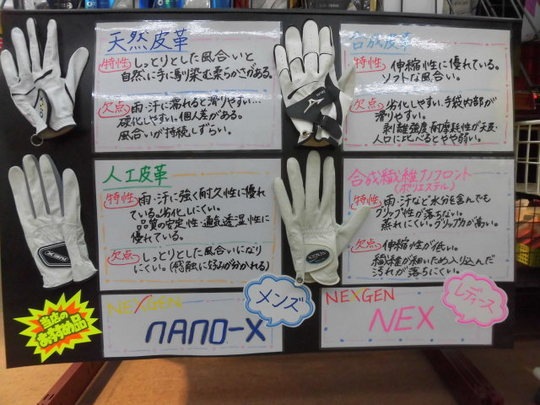 天然皮革
特性 しっとりとした風合いと
自然に手に馴染む柔らかさがある。
欠点 雨・汗に濡れると滑りやすい…
硬化しやすい。個人差がある。
風合いが持続しずらい。
合成皮革
特性 伸縮性に優れている。
ソフトな風合い。
欠点 劣化しやすい。手袋内部が
滑りやすい。
剥離強度・耐摩耗性が天皮・
人口に比べるとやや弱い。
人工皮革
特性 雨・汗に強く耐久性に優れ
ている。劣化しにくい。
品質の安定性・通気透湿性に
優れている。
欠点 しっとりとした風合いになり
にくい。(感触に好みが分かれる)
合成繊維ノンフロント
(ポリエステル)
特性 雨・汗など水分を含んでも
グリップ性が落ちない。
蒸れにくい。グリップ力が高い。
欠点 伸縮性が低い。
繊維が細いため入り込んだ
汚れが落ちにくい。
当店の
おすすめ品
NEXGEN
メンズ
NANO-X
NEXGEN
レディース
NEX